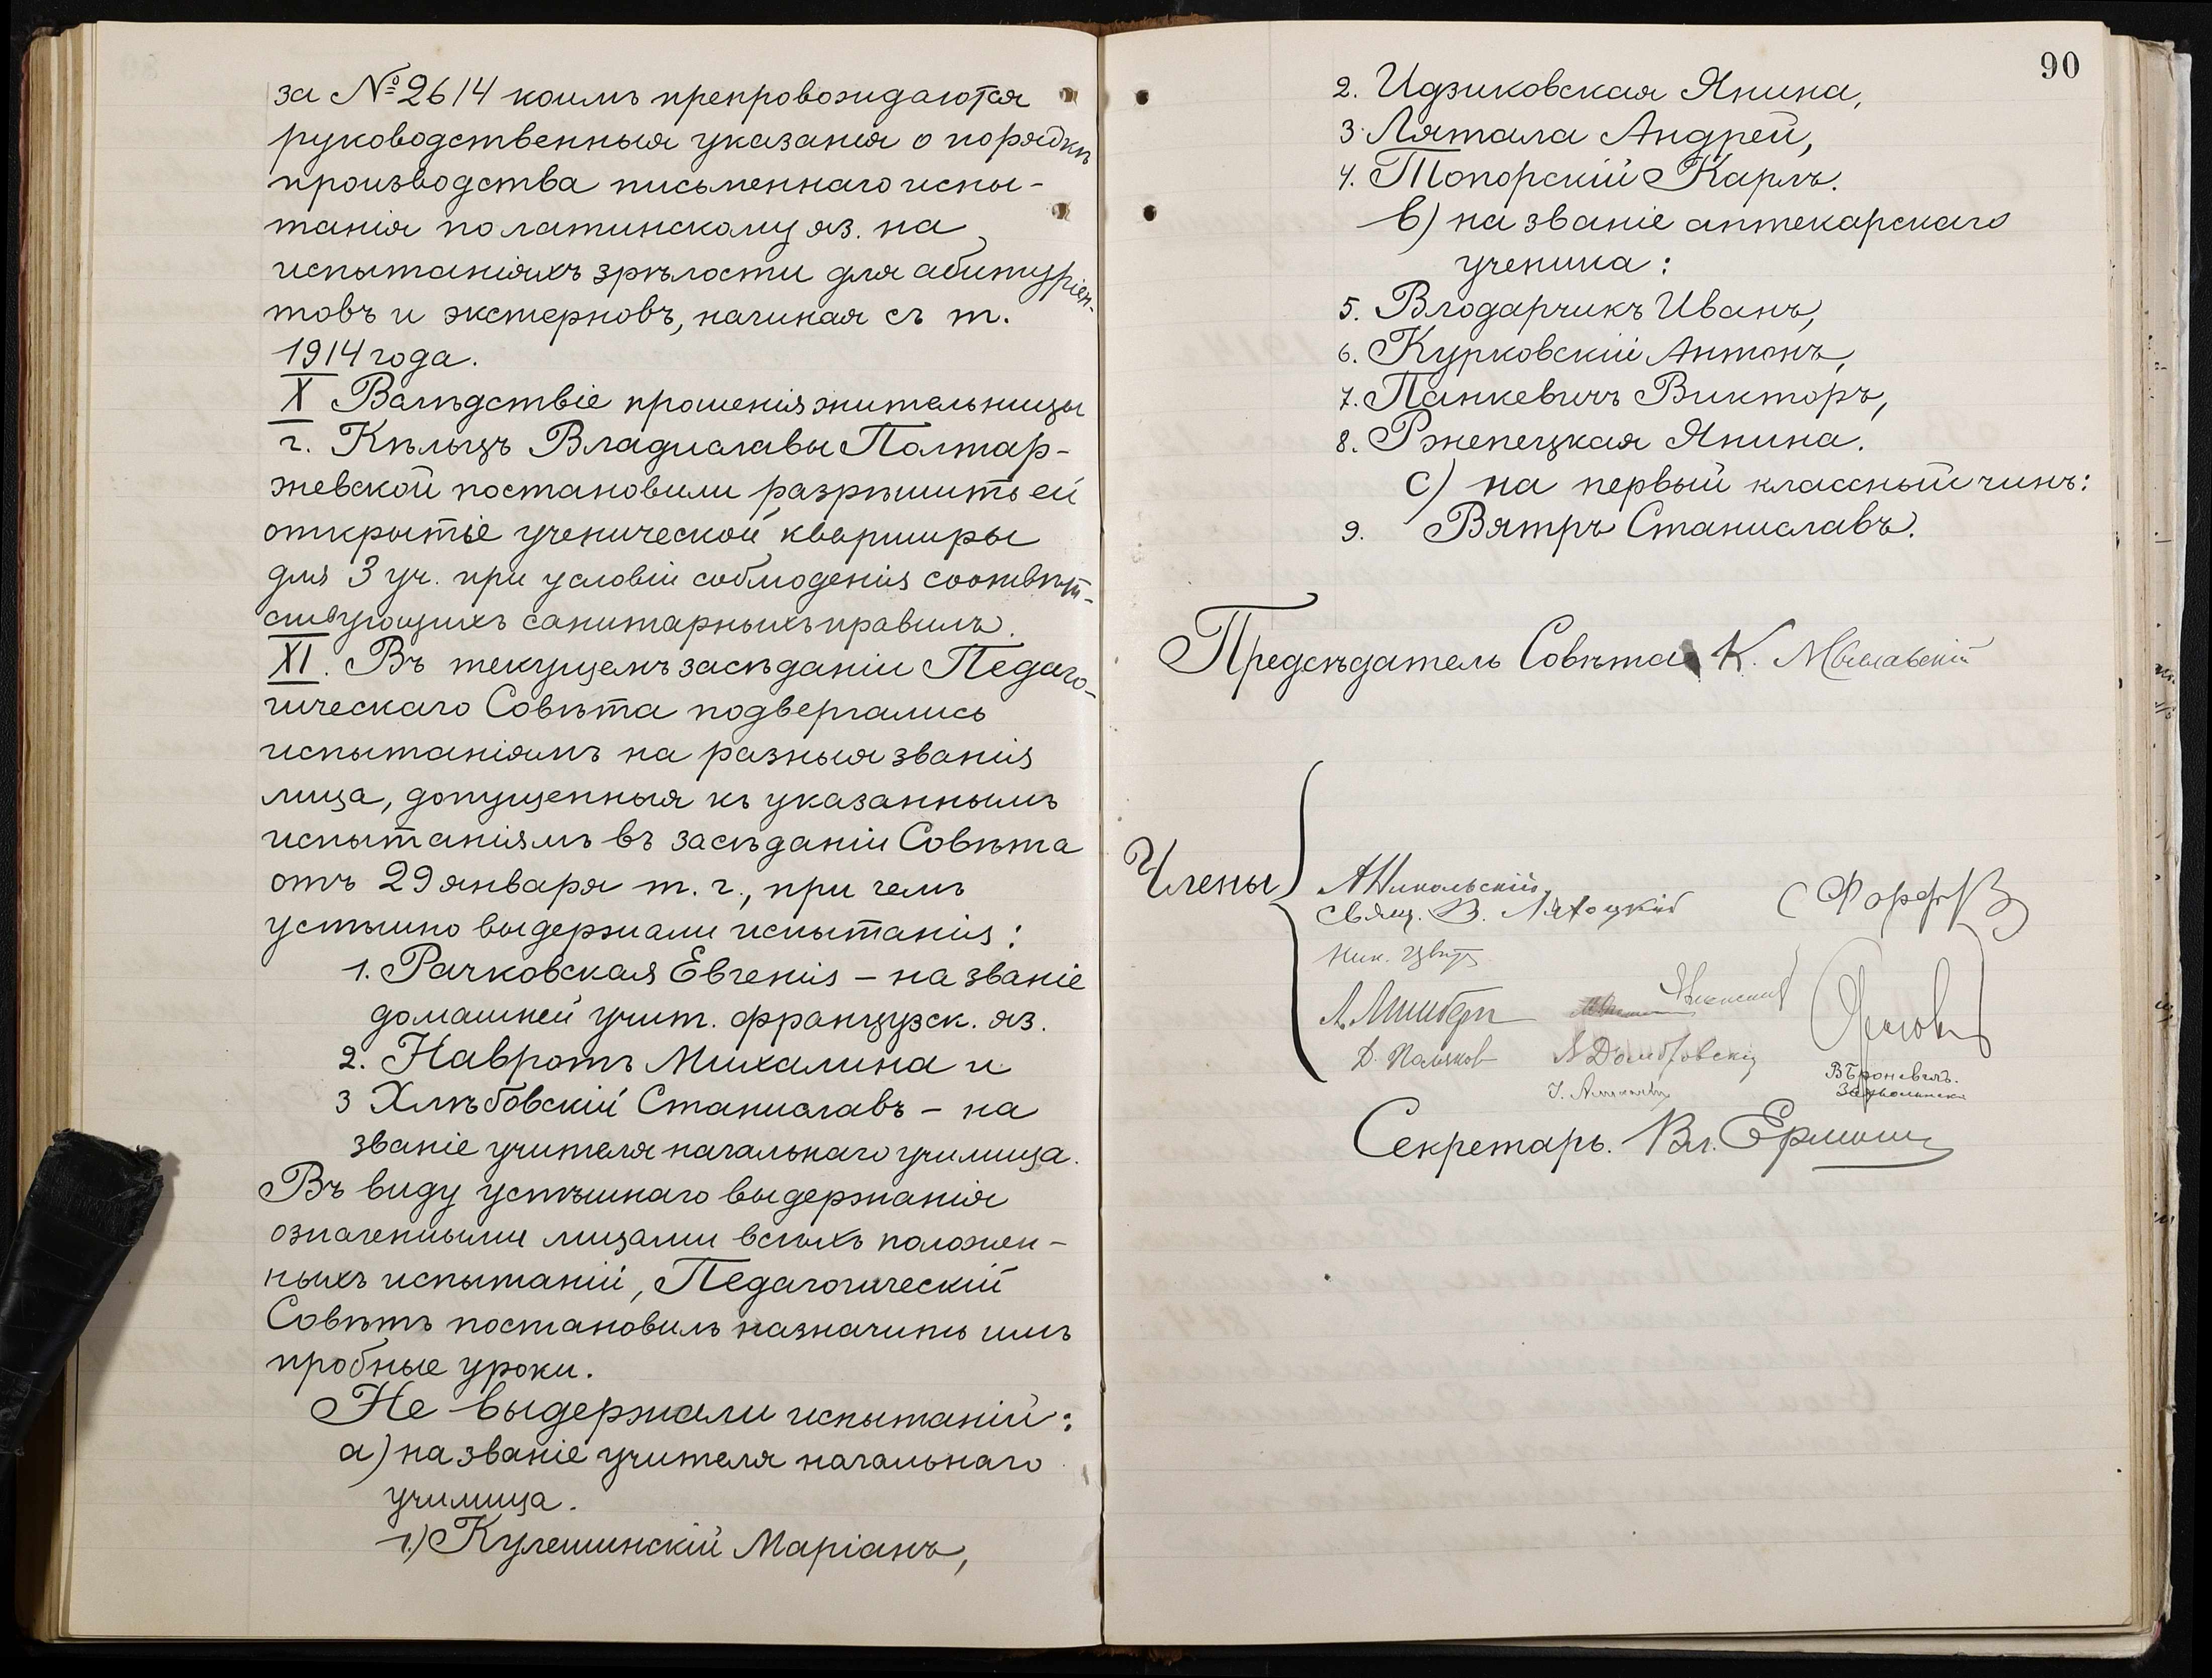 за № 2614 коимъ препровождаются
руководственныя указанія о порядкѣ
производства письменнаго испы-
танія по латинскому яз. на
испытаніяхъ зрѣлости для абитуріен-
товъ и экстерновъ, начиная съ т.
1914 года.
X Вслѣдствіе прошенія жительницы
г. Кѣльцъ Владиславы Полтар-
жевской постановили разрѣшить ей
открытіе ученической квартиры
для 3 уч. при условіи соблюденія соотвѣт-
ствующихъ санитарныхъ правилъ.
XI. Въ текущемъ засѣданіи Педаго-
гическаго Совѣта подвергались
испытаніямъ на разныя званія
лица, допущенныя къ указаннымъ
испытаніямъ въ засѣданіи Совѣта
отъ 29 января т. г., при чемъ
успѣшно выдержали испытанія:
1. Рачковская Евгенія – на званіе
домашней учит. французск. яз.
2. Навротъ Михалина и
3 Хлѣбовскій Станиславъ – на
званіе учителя начальнаго училища.
Въ виду успѣшнаго выдержанія
означенными лицами всѣхъ положен-
ныхъ испытаній, Педагогическій
Совѣтъ постановилъ назначить имъ
пробные уроки.
Не выдержали испытаній:
а) на званіе учителя начальнаго
училища.
1.) Кулешинскій Маріанъ,
90
2. Идзиковская Янина,
3. Лятала Андрей,
4. Топорскій Карлъ.
в) на званіе аптекарскаго
ученика:
5. Влодарчикъ Иванъ,
6. Курковскій Антонъ,
7. Панкевичъ Викторъ,
8. Рженецкая Янина.
с) на первый классный чинъ:
9. Вятръ Станиславъ.
Предсѣдатель Совѣта К.
Члены
А Никольскій
Свящ. В.
Ник.
Д. Поляков А Домбровскій
Секретарь. Вл.